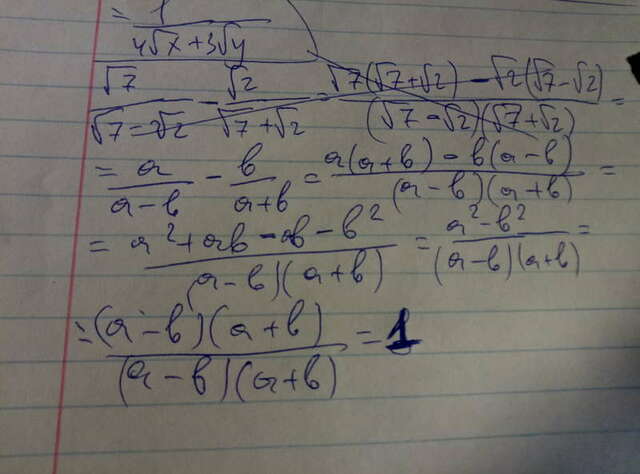 = 1 / (4√x + 3√y)
√7 / (√7 = √2) - √2 / (√7 + √2) = (√7(√7+√2) - √2(√7-√2)) / ((√7-√2)(√7+√2)) =
= a / (a-b) - b / (a+b) = (a(a+b) - b(a-b)) / ((a-b)(a+b)) =
= (a² + ab - ab - b²) / ((a-b)(a+b)) = (a² - b²) / ((a-b)(a+b)) =
= ((a-b)(a+b)) / ((a-b)(a+b)) = 1